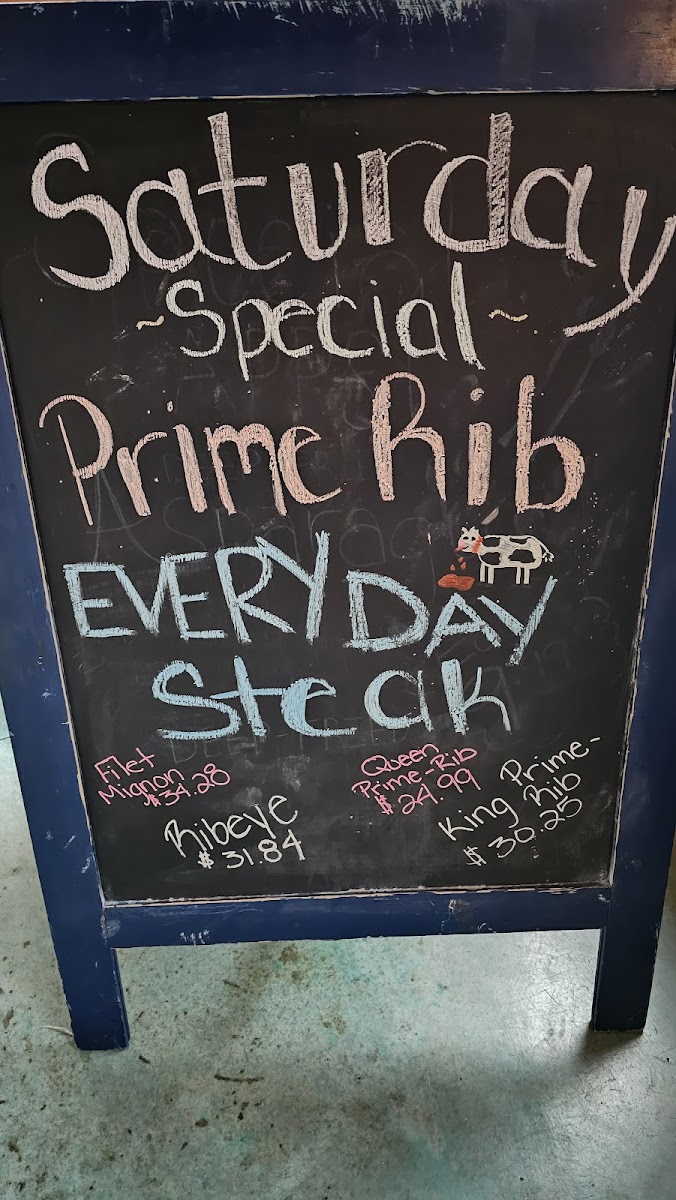 Saturday
~Special~
Prime Rib
EVERYDAY
Steak
Filet
Mignon
$34.28
Ribeye
$31.84
Queen
Prime-Rib
$24.99
King Prime-
Rib
$30.25